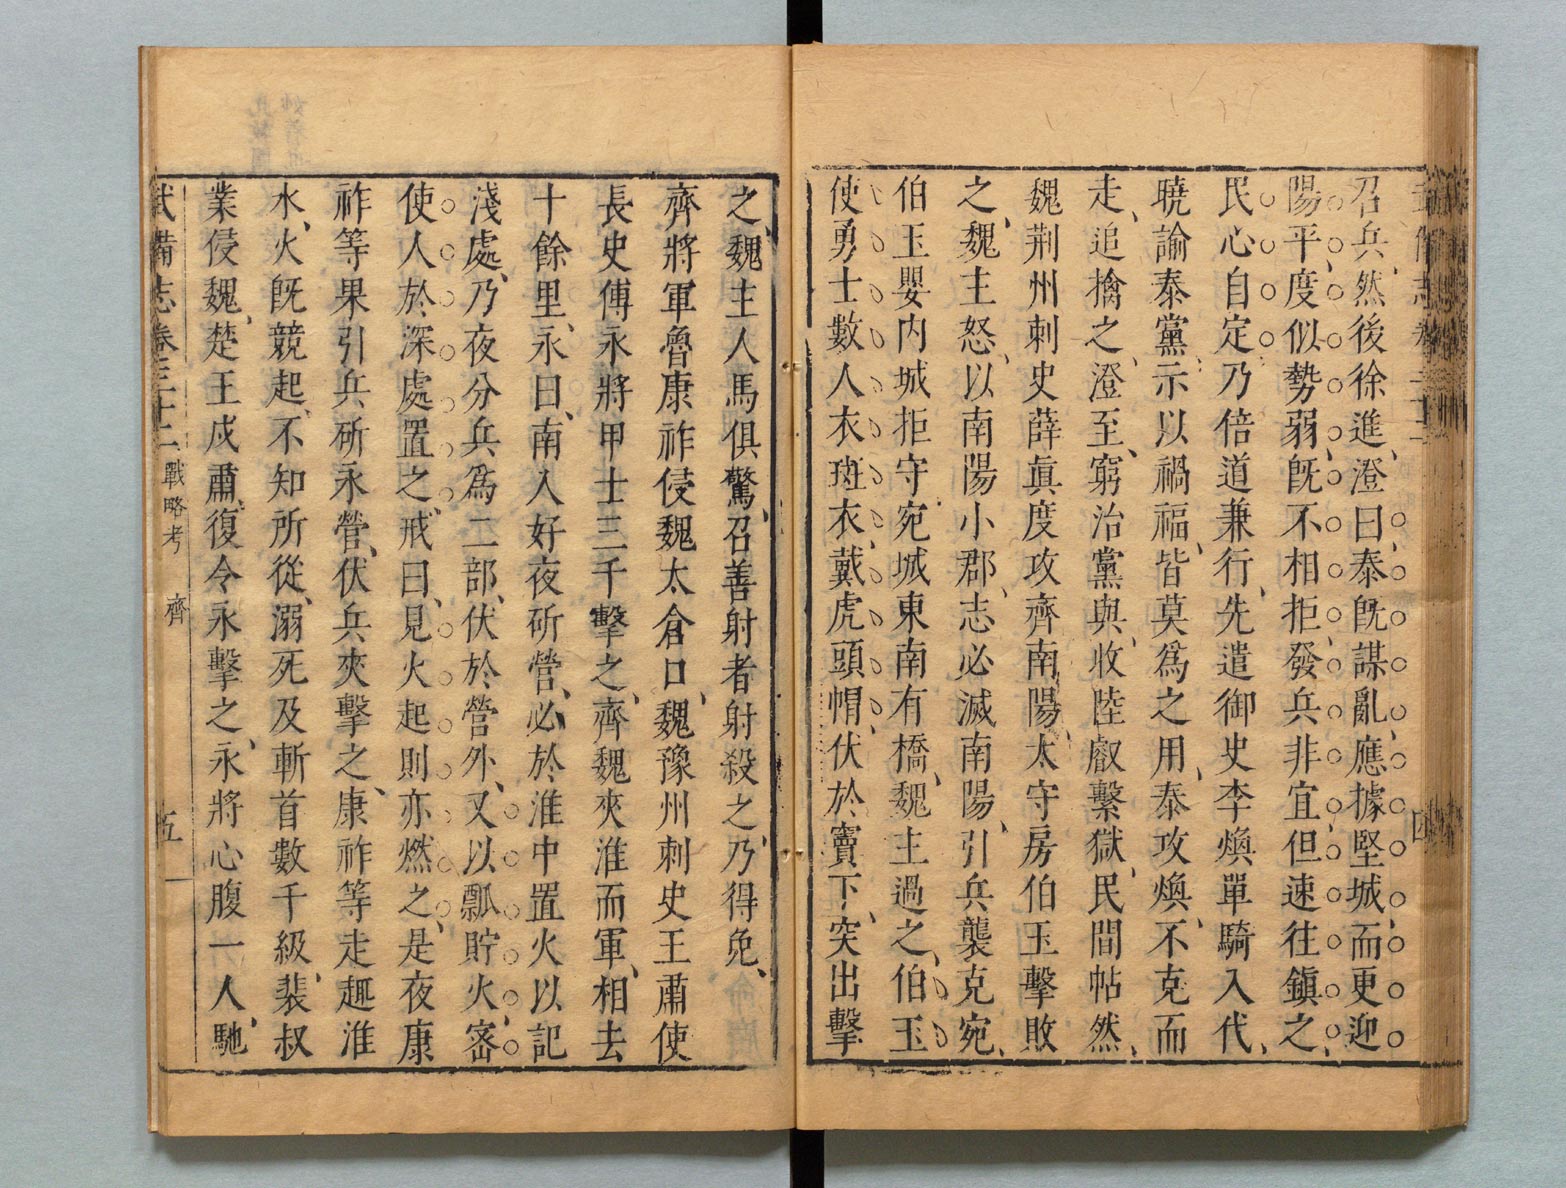 召兵、然後徐進、澄曰、泰旣謀亂、應據堅城、而更迎
陽平、度似勢弱、旣不相拒、發兵非宜、但速往鎭之、
民心自定、乃倍道兼行、先遣御史李煥單騎入代、
曉諭泰黨、示以禍福、皆莫爲之用、泰攻煥、不克而
走、追擒之、澄至、窮治黨與、收陸叡繫獄、民間帖然、
魏荆州刺史薛眞度攻齊南陽、太守房伯玉擊敗
之、魏主怒、以南陽小郡、志必滅南陽、引兵襲克宛、
伯玉嬰内城拒守、宛城東南有橋、魏主過之、伯玉
使勇士數人衣斑衣、戴虎頭帽、伏於竇下、突出擊
之、魏主人馬俱驚、召善射者射殺之、乃得免、
齊將軍魯康祚侵魏太倉口、魏豫州刺史王肅使
長史傅永將甲士三千擊之、齊魏夾淮而軍、相去
十餘里、永曰、南人好夜斫營、必於淮中置火以記
淺處、乃夜分兵爲二部、伏於營外、又以瓢貯火、密
使人於深處置之、戒曰、見火起則亦燃之、是夜康
祚等果引兵斫永營、伏兵夾擊之、康祚等走趣淮
水、火旣競起、不知所從、溺死及斬首數千級、裴叔
業侵魏、楚王戍肅、復令永擊之、永將心腹一人、馳
武備志卷三十二 戰略考 齊 五